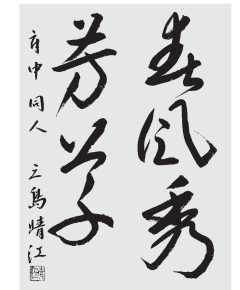 春風秀
芳草
府中 同人 三島晴江